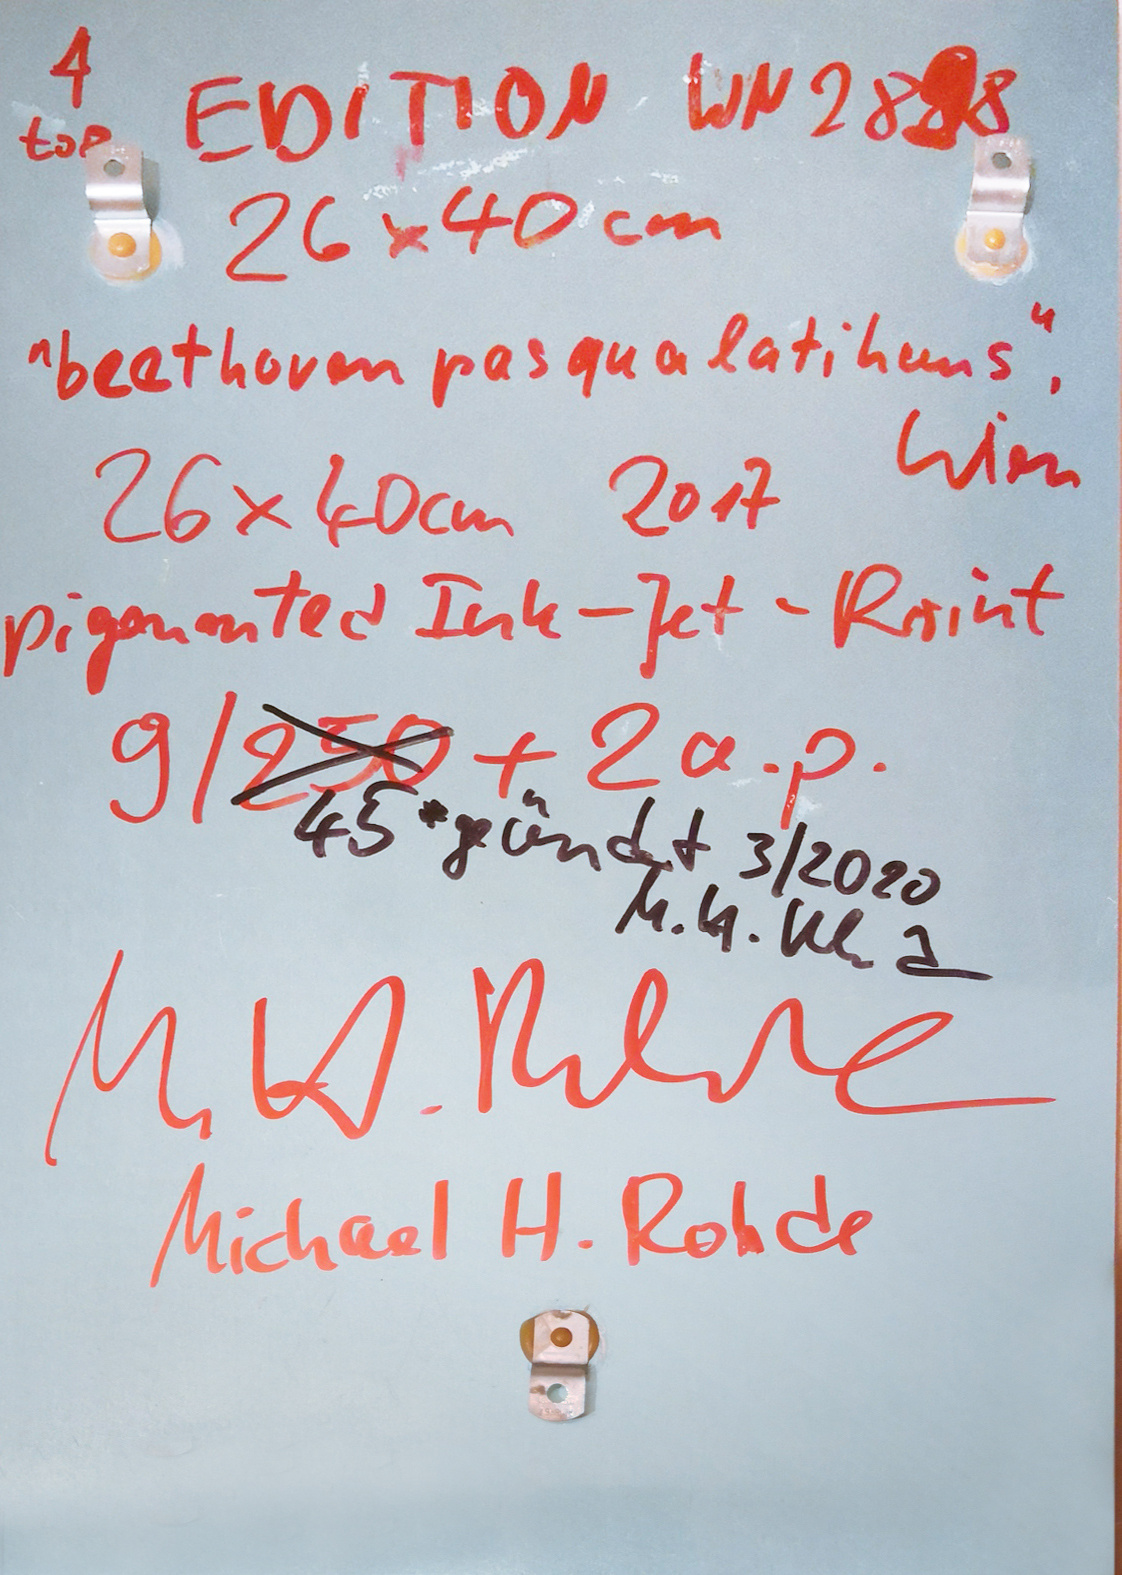 ↑
top
EDITION WN 2888
26 x 40 cm
"beethoven pasqualatihaus",
Wien
26 x 40cm 2017
pigmented Ink-Jet-Print
9/250 + 2 a.p.
45 *geändert 3/2020
M.H. Rohde
Michael H. Rohde